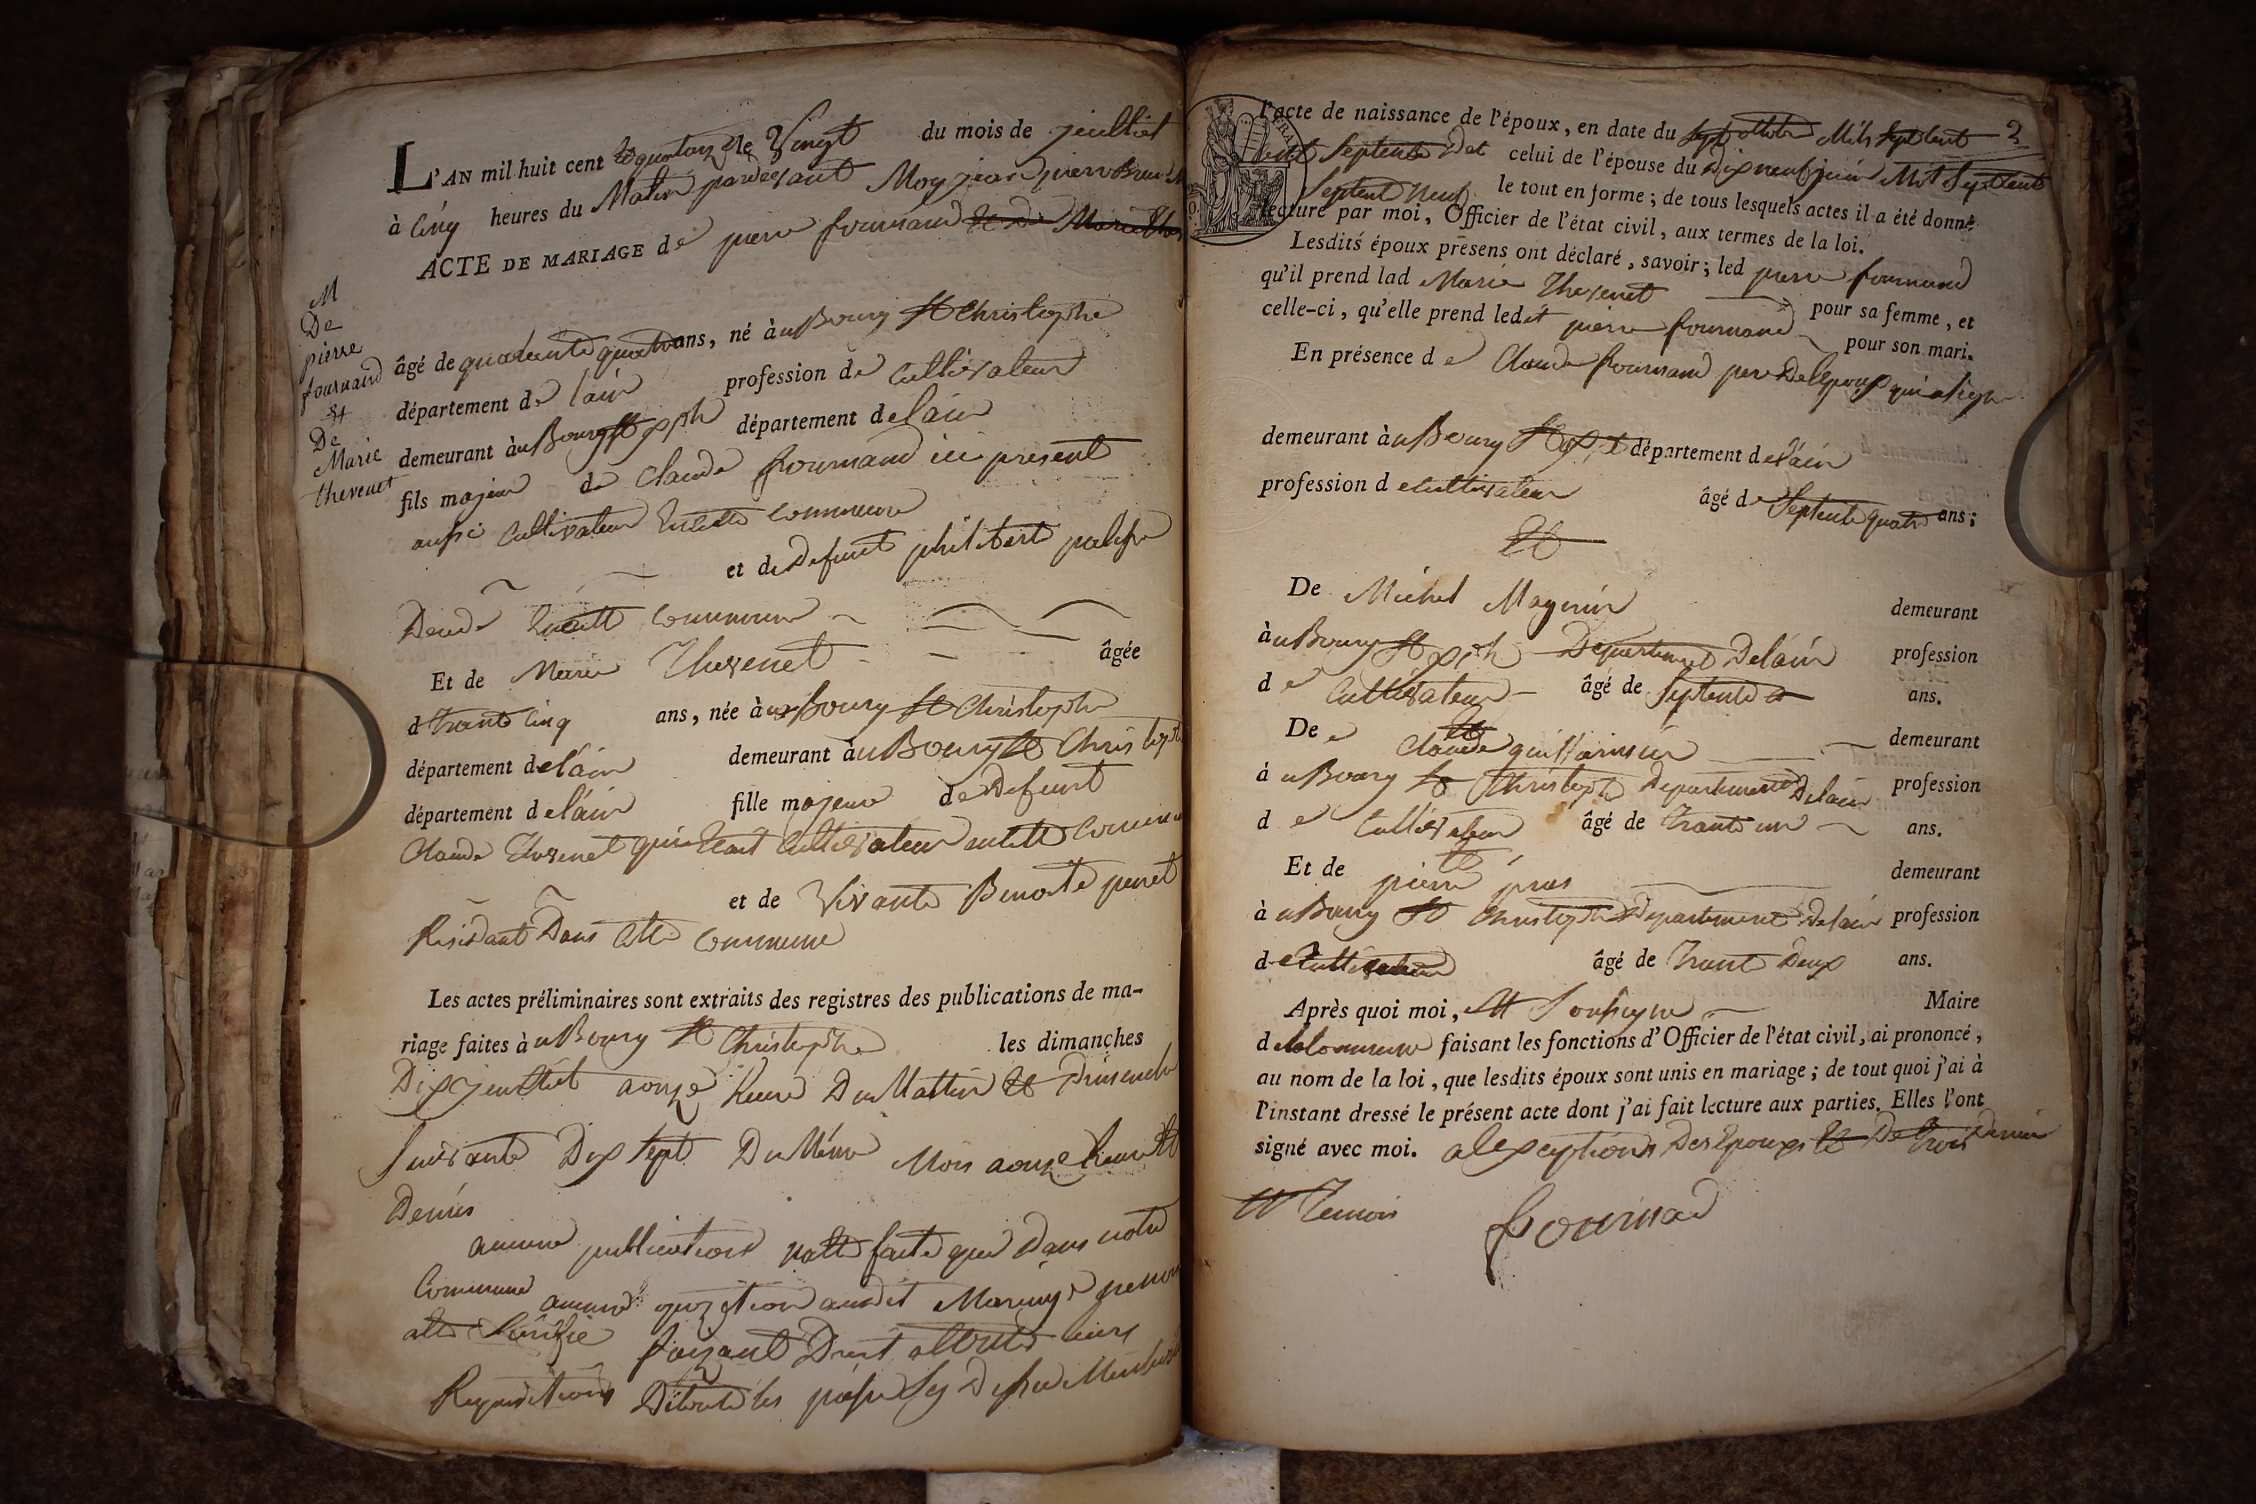 L'AN mil huit cent et quatorze le Vingt du mois de juilliet
à Cinq heures du Matin pardevant Moy jean pierre
ACTE DE MARIAGE de pierre fournand et de Marie
M
De
pierre
fournand
et
De
Marie
thevenet
âgé de quarente quatre ans, né àu Bourg St Christophe
département de lain profession de Cultivateur
demeurant àu Bourg St xph département de lain
fils majeur de Claude fournand ici présent
aussi Cultivateur en cette commune
et de Defunte philiberte
Dans cette commune
Et de Marie Thevenet âgée
d trante Cinq ans, née àu Bourg St Christophe
département de lain demeurant àu Bourg St Christophe
département de lain fille majeure de Defunt
Claude Thevenet qui Etait Cultivateur en cette Commune
et de Vivante Benoite perret
Résidant Dans cette commune
Les actes préliminaires sont extraits des registres des publications de ma-
riage faites àu Bourg St Christophe les dimanches
Dix juilliet a onze heure Du Mattin et Dimenche
Suivante Dix Sept Du Même Mois a onze heure Et
Demies
aucune publication natte faite que Dans notre
Commune aucune opozition audit Mariage
atte Sinifie faizant Droit attoute leurs
Requisitions
l'acte de naissance de l'époux, en date du Sept octobre Mils Sept Cent 2
Septente celui de l'épouse du Dix neuf juin Mil Sept Cent
Septent Neuf le tout en forme ; de tous lesquels actes il a été donné
lecture par moi, Officier de l'état civil, aux termes de la loi.
Lesdits époux présens ont déclaré, savoir ; led pierre fournand
qu'il prend lad Marie Thevenet pour sa femme, et
celle-ci, qu'elle prend ledit pierre fournand pour son mari.
En présence de Claude fournand pere De lepoux qui a signe
demeurant àu Bourg St xph département de lain
profession de Cultivateur âgé de Septente quatre ans ;
Et
De Michel Magnin demeurant
àu Bourg St xph Departement De lain profession
de Cultivateur âgé de Septente ans.
Et
De Claude guillermin demeurant
à u Bourg St Christophe Departement De lain profession
de Cultivateur âgé de Trante un ans.
Et
Et de pierre demeurant
à u Bourg St Christophe Departement De lain profession
de Cultivateur âgé de Trante Deux ans.
Après quoi moi, Soussigné Maire
de la Commune faisant les fonctions d'Officier de l'état civil, ai prononcé,
au nom de la loi, que lesdits époux sont unis en mariage ; de tout quoi j'ai à
l'instant dressé le présent acte dont j'ai fait lecture aux parties. Elles l'ont
signé avec moi. a lexceptions Des Epoux et De trois Dernier
Temoin fournad